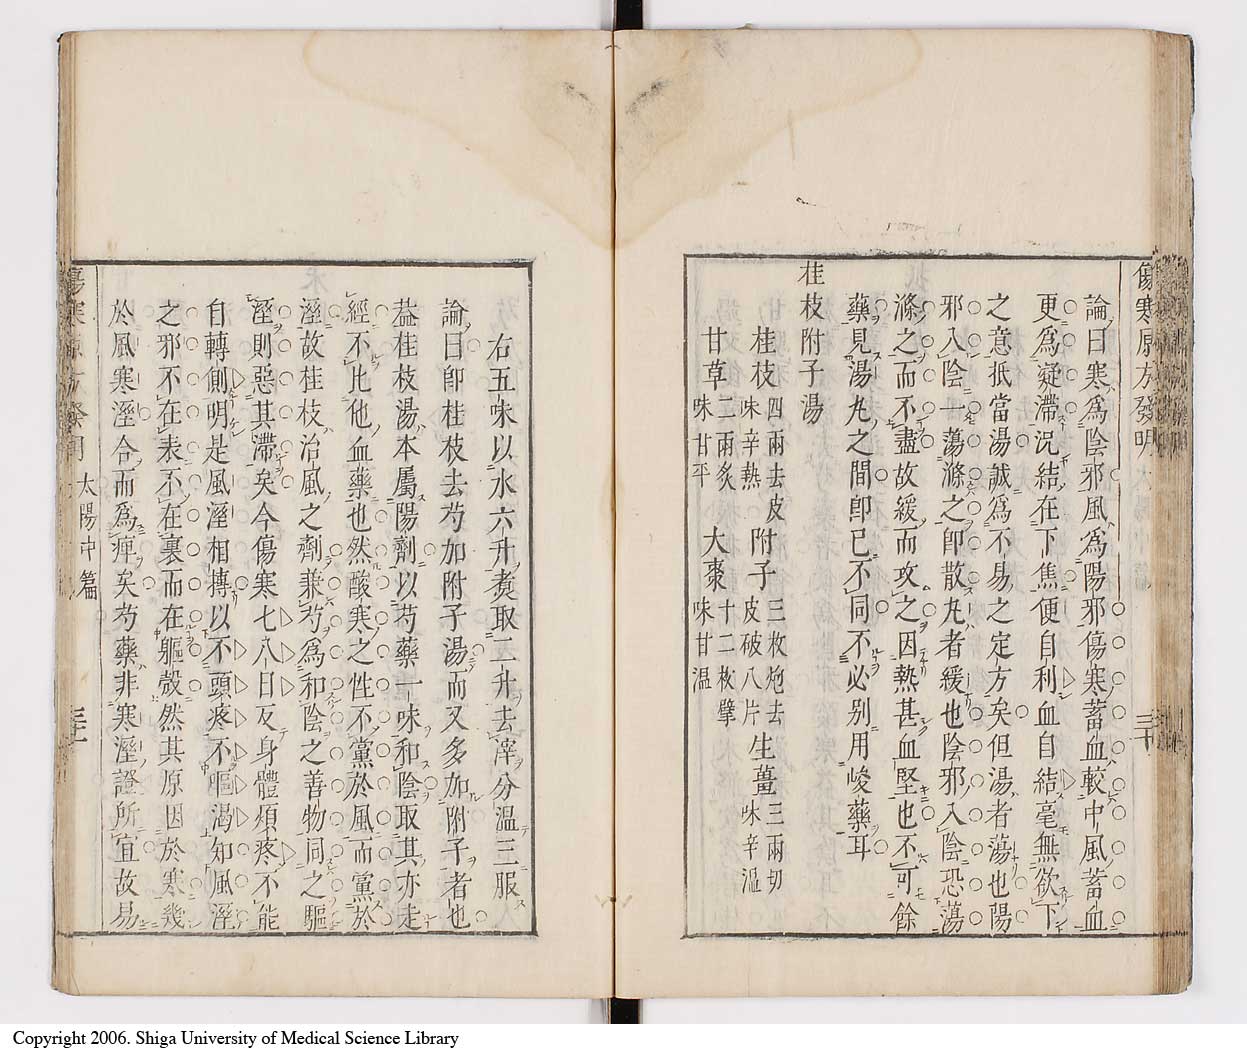 傷寒原方發明 太陽中篇 三十
論曰寒爲陰邪風爲陽邪傷寒蓄血較中風蓄血
更爲凝滯況結在下焦便自利血自結毫無欲下
之意抵當湯誠爲不易之定方矣但湯者蕩也陽
邪入陰一蕩滌之即散丸者緩也陰邪入陰恐蕩
滌之而不盡故緩而攻之因熱甚血堅也不可餘
藥見湯丸之間即已不同不必别用峻藥耳
桂枝附子湯
桂枝 四兩去皮 味辛熱 附子 三枚炮去皮破八片 生薑 三兩切 味辛溫
甘草 二兩炙 味甘平 大棗 十二枚擘 味甘溫
右五味以水六升煑取二升去滓分温三服
論曰即桂枝去芍加附子湯而又多加附子者也
葢桂枝湯本屬陽劑以芍藥一味和陰取其亦走
經不比他血藥也然酸寒之性不黨於風而黨於
溼故桂枝治風之劑兼芍爲和陰之善物同之驅
溼則惡其滯矣今傷寒七八日反身體煩疼不能
自轉側明是風溼相摶以不頭疼不嘔渴知風溼
之邪不在表不在裏而在軀殼然其原因於寒幾
於風寒溼合而爲痺矣芍藥非寒溼證所宜故易
傷寒原方發明 太陽中篇 三十一
Copyright 2006. Shiga University of Medical Science Library